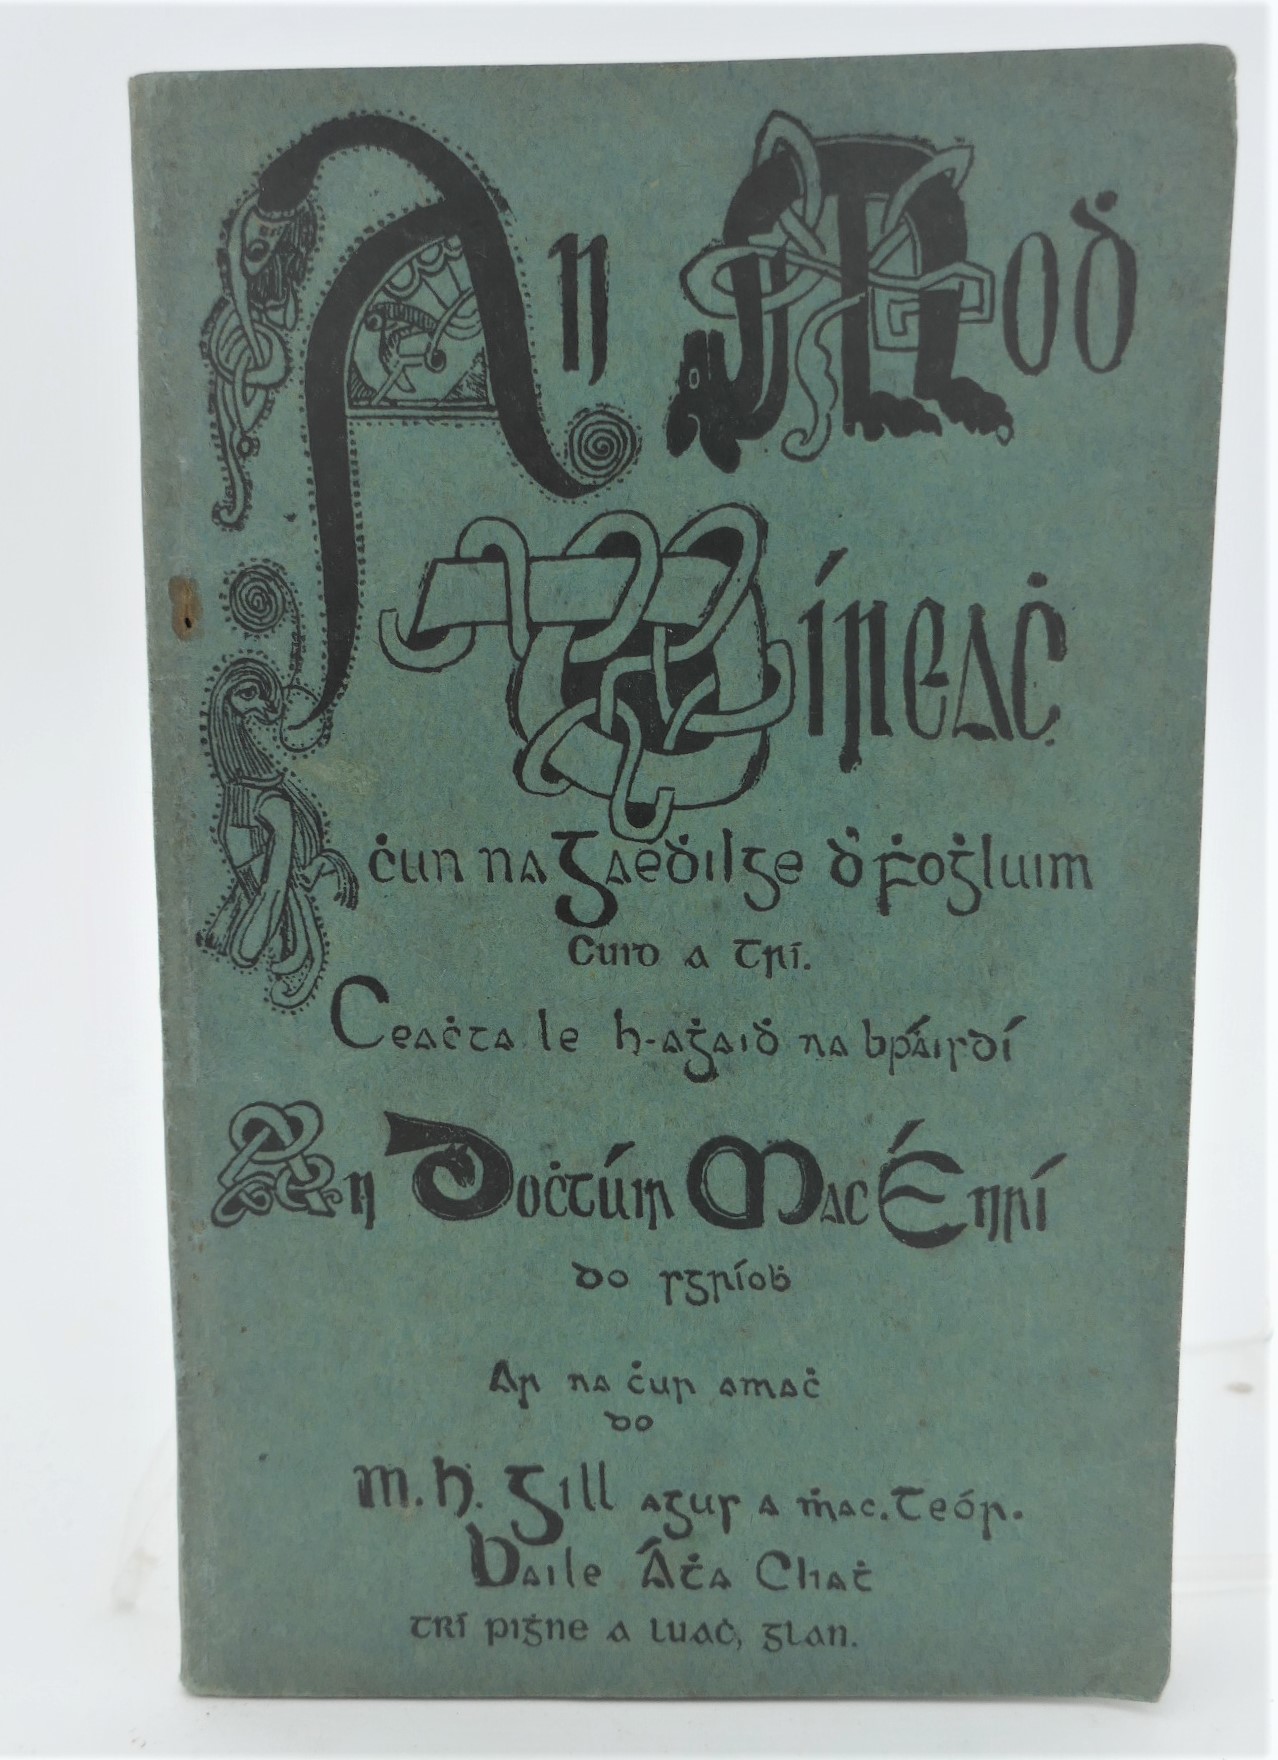 An Moḋ
Díreaċ
ċun na Gaeḋilge d'ḟoġluim
Cuid a trí.
Ceaċta le h-aġaiḋ na bpáirdí
An Doċtúir Mac Énrí
do sgríoḃ
Ar na ċur amaċ
do
M. H. Gill agus a ṁac. Teór.
Baile Áṫa Cliaṫ
trí piġne a luaċ, glan.